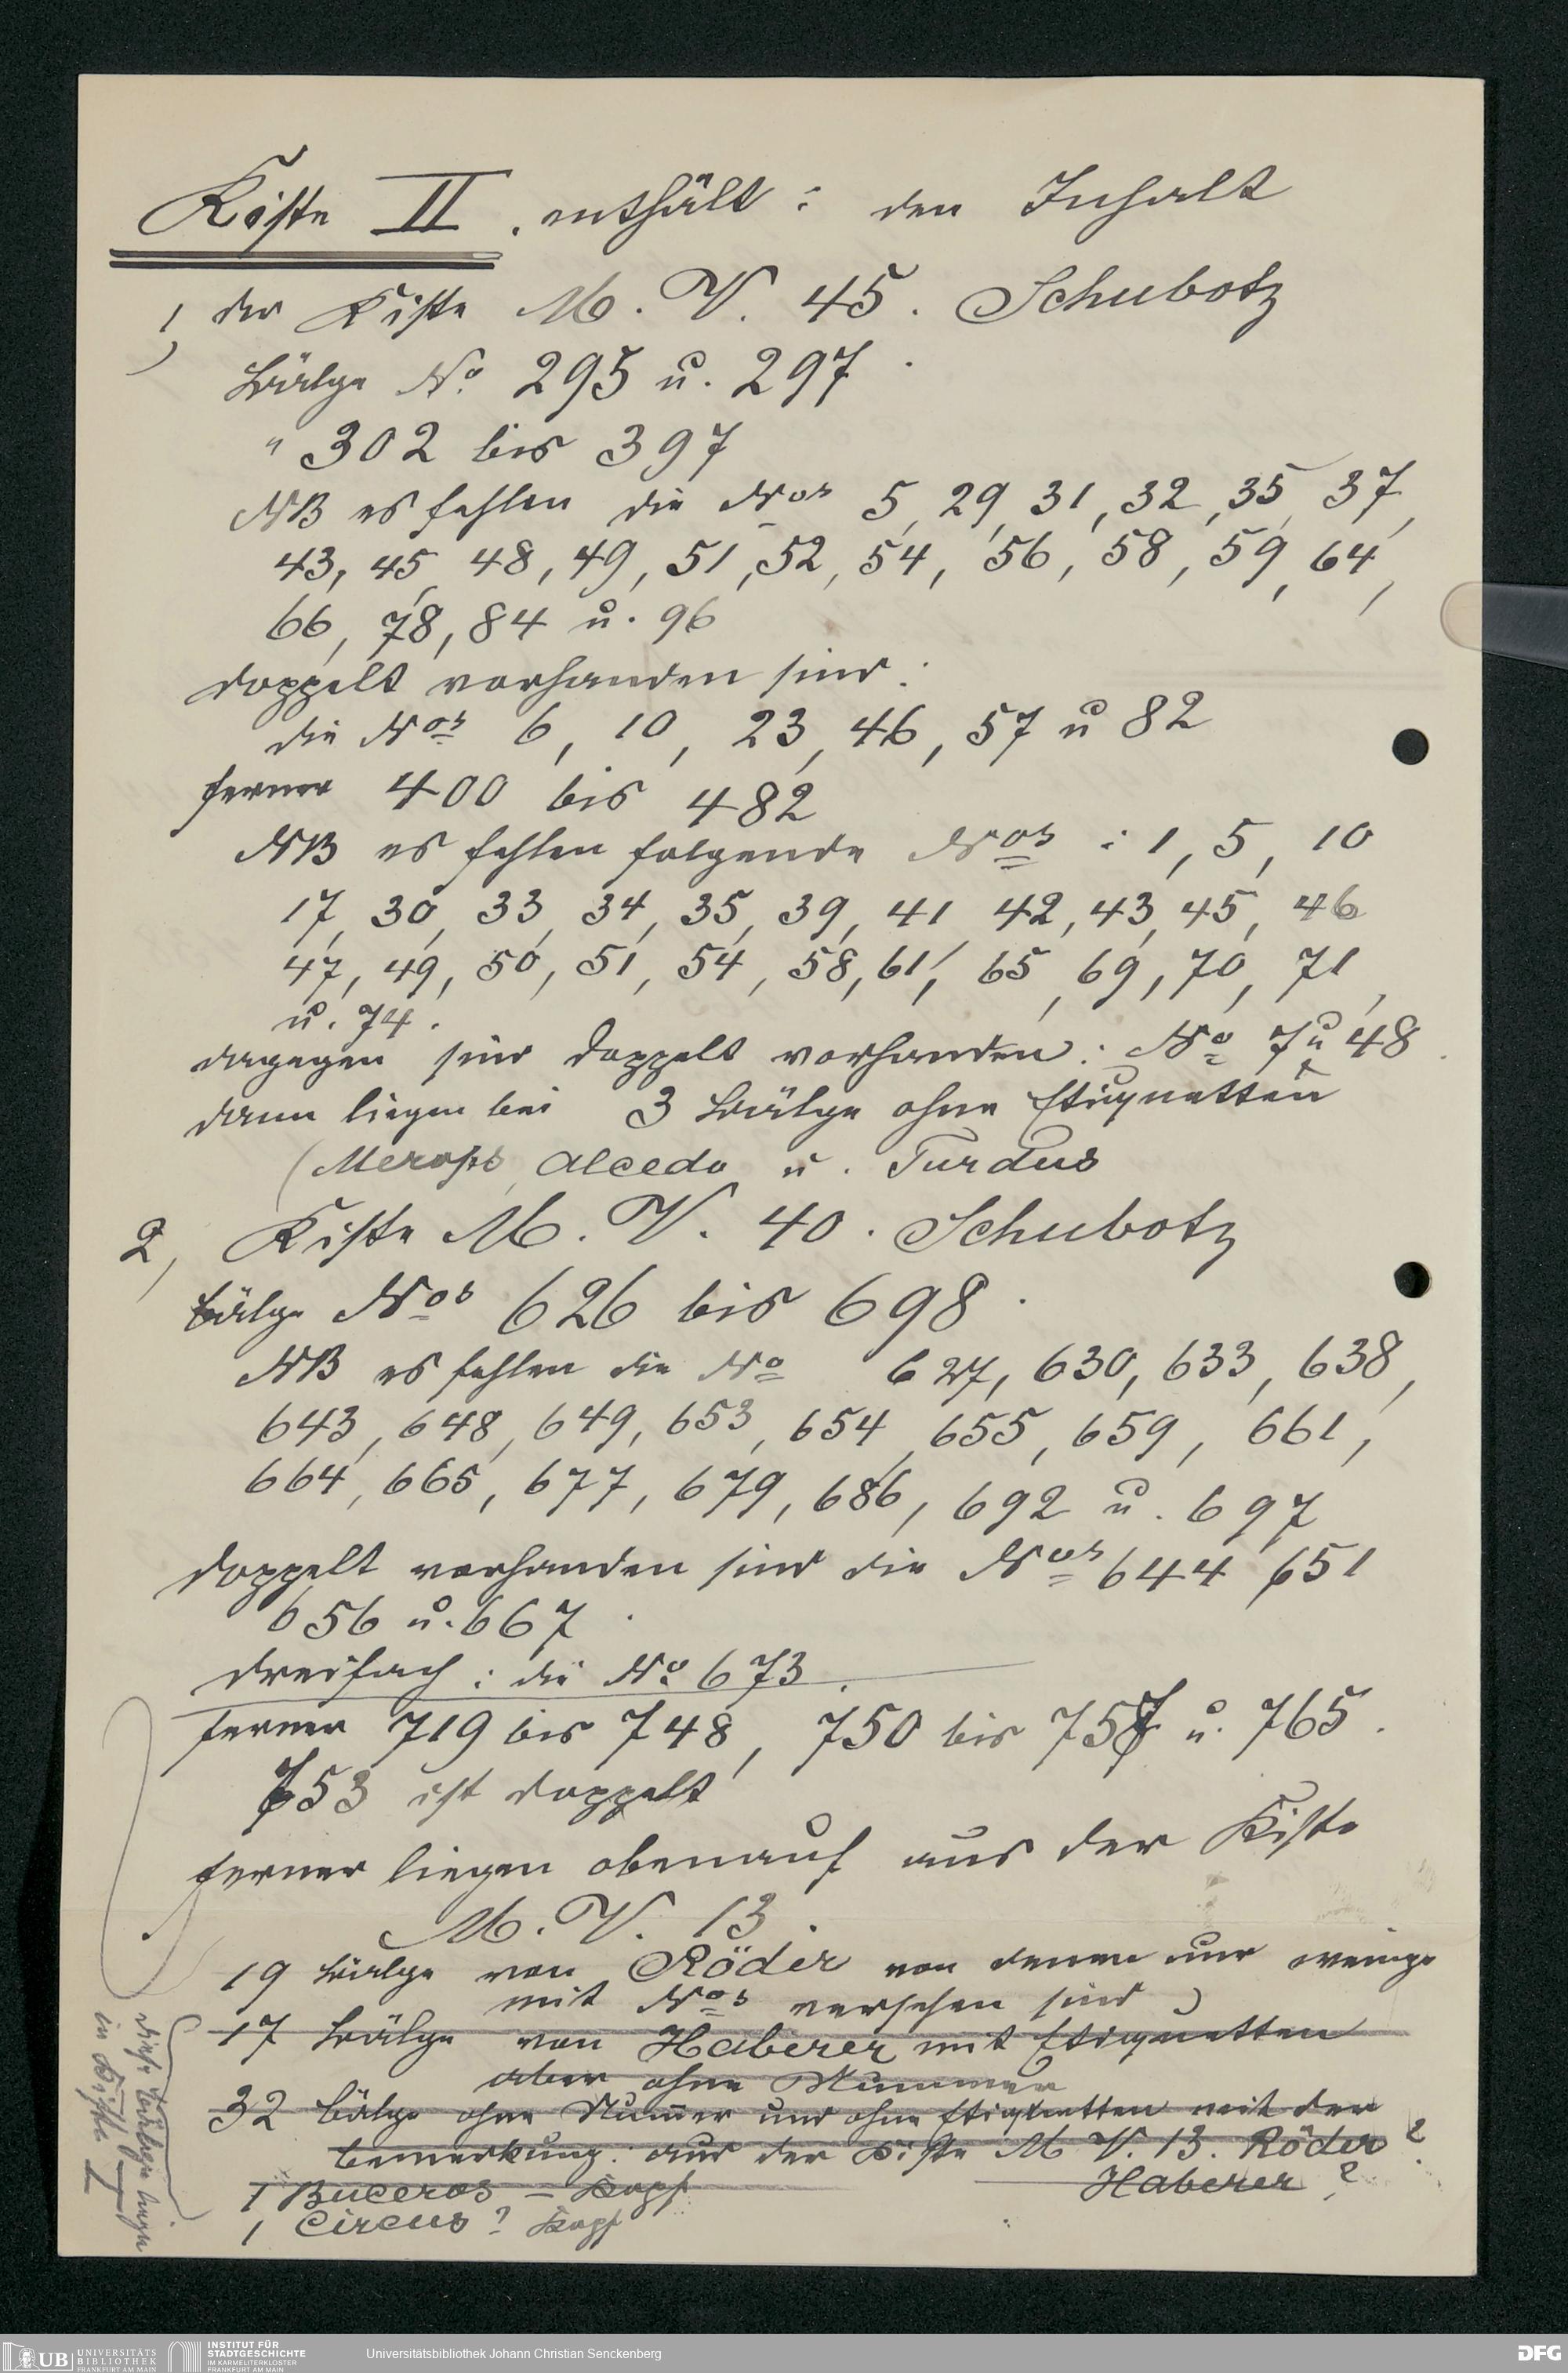 Kiste II. enthält: den Inhalt
1, der Kiste M. V. 45. Schubotz
Bälge No. 295 u. 297.
" 302 bis 397
NB es fehlen die Nos 5, 29, 31, 32, 35, 37,
43, 45, 48, 49, 51, 52, 54, 56, 58, 59, 64,
66, 78, 84 u. 96
doppelt vorhanden sind:
die Nos 6, 10, 23, 46, 57 u 82
ferner 400 bis 482
NB es fehlen folgende Nos: 1, 5, 10
17, 30, 33, 34, 35, 39, 41 42, 43, 45, 46
47, 49, 50, 51, 54, 58, 61, 65, 69, 70, 71,
u. 74.
dagegen sind doppelt vorhanden: No 7 u 48.
dann liegen bei 3 Bälge ohne Etiquetten
(Merops, Alcedo u. Turdus
2, Kiste M. V. 40. Schubotz
Bälge Nos 626 bis 698.
NB es fehlen die No 627, 630, 633, 638,
643, 648, 649, 653, 654, 655, 659, 661,
664, 665, 677, 679, 686, 692 u. 697
doppelt vorhanden sind die Nos 644 651
656 u. 667.
dreifach: die No 673.
ferner 719 bis 748, 750 bis 757 u. 765.
753 ist doppelt
ferner liegen obenauf aus der Kiste
M. V. 13.
19 Bälge von Röder von denen nur wenige
mit Nos versehen sind
17 Bälge von Haberer mit Etiquetten
aber ohne Nummer
32 Bälge ohne Nummer und ohne Etiquetten mit der
Bemerkung: aus der Kiste M V. 13. Röder?
Haberer?
1 Buceros = Kopf
1 Circus? Kopf
diese Bälge liegen
in Kiste I
UB UNIVERSITÄTS
BIBLIOTHEK
FRANKFURT AM MAIN
INSTITUT FÜR
STADTGESCHICHTE
IM KARMELITERKLOSTER
FRANKFURT AM MAIN
Universitätsbibliothek Johann Christian Senckenberg
DFG